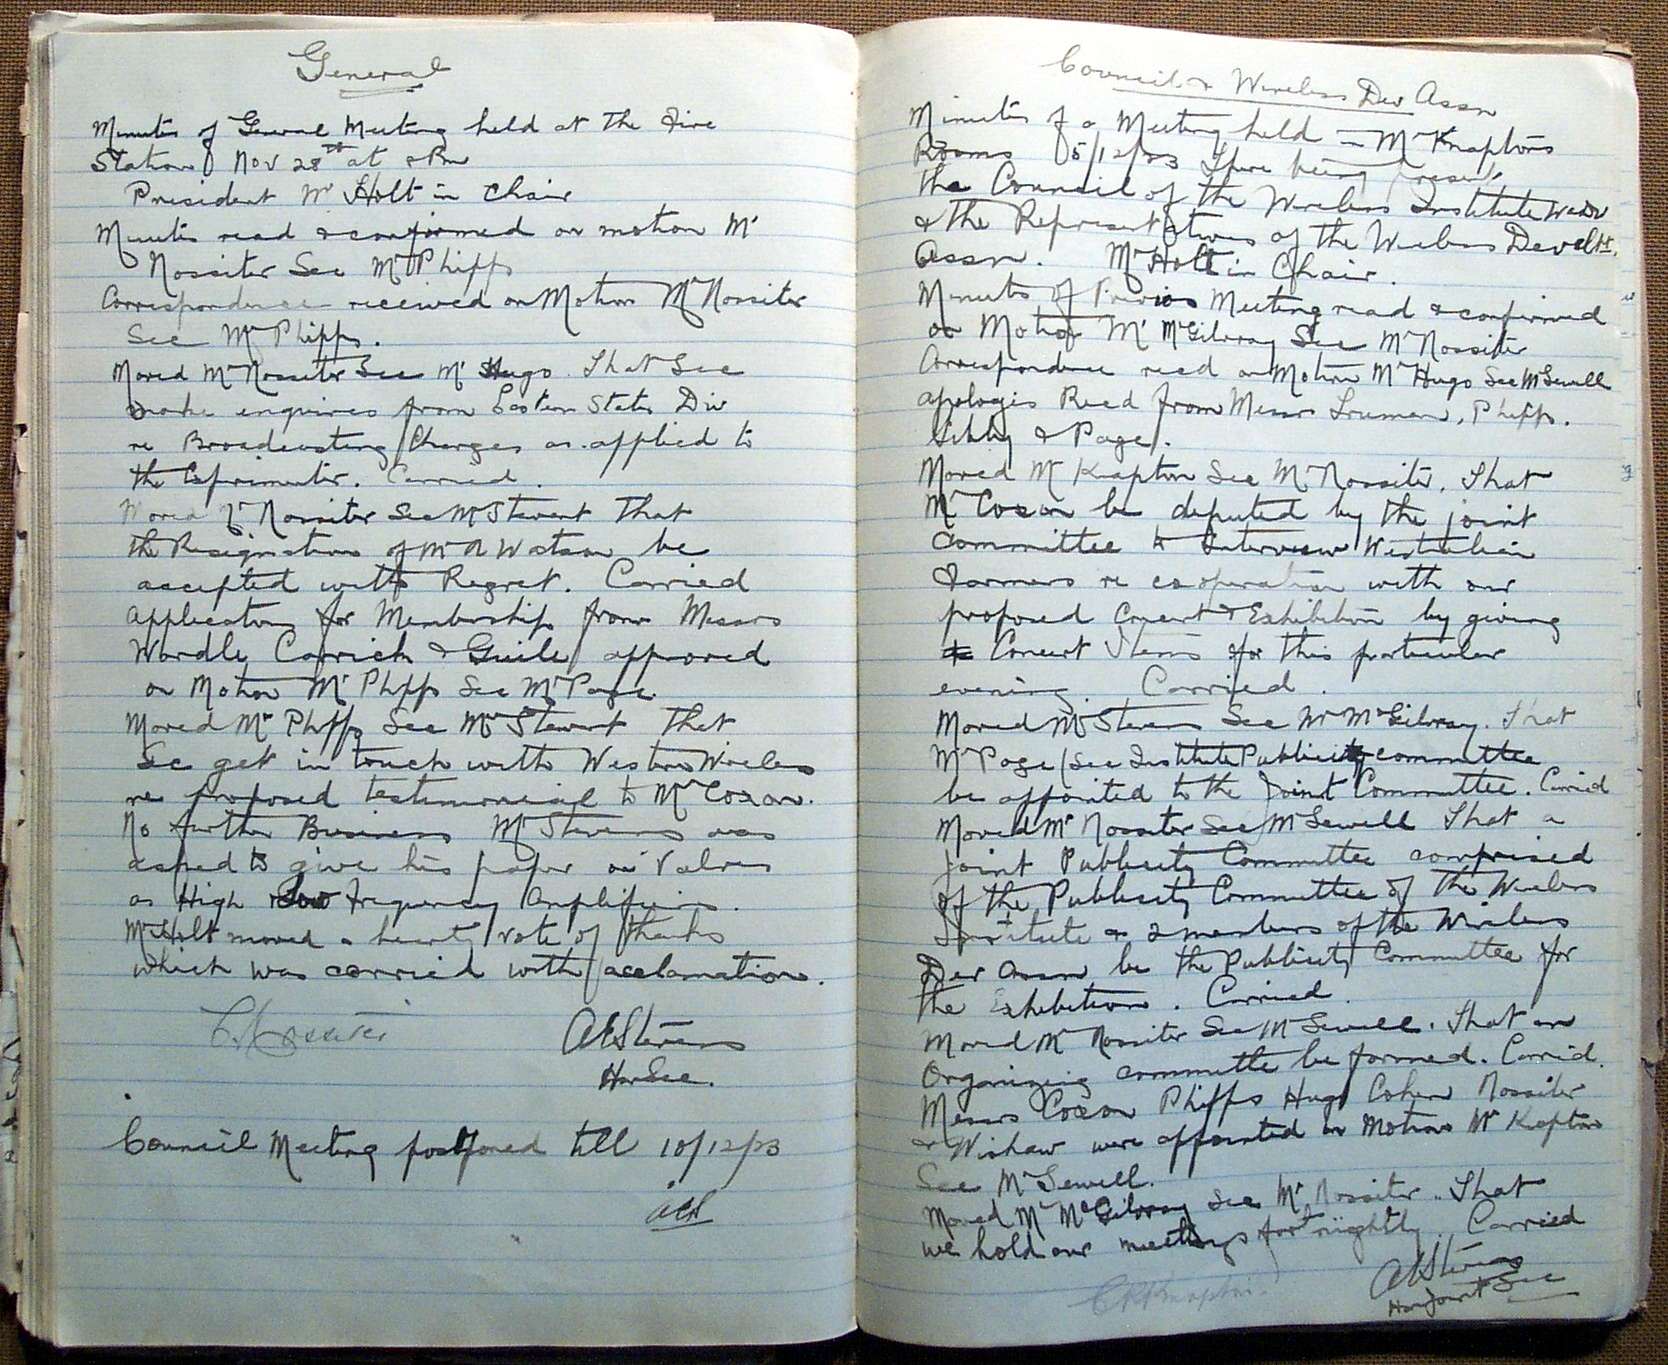 General
Minutes of General Meeting held at the Fire
Station Nov 28th at 8 Pm
President Mr Holt in Chair
Minutes read & confirmed on motion Mr
Rossiter Sec Mr Phipps
Correspondence received on Motion Mr Rossiter
Sec Mr Phipps.
Moved Mr Rossiter Sec Mr Hugo. That Sec
make enquires from Eastern States Div
re Broadcasting Charges as applied to
the Exprimenter. Carried.
Moved Mr Rossiter Sec Mr Stewart That
the Resignation of Mr A Watson be
accepted with Regret. Carried
Applications for Membership from Messrs
Wardle Carrick & Guile approved
on Motion Mr Phipps Sec Mr Page.
Moved Mr Phipps Sec Mr Stewart That
Sec get in touch with Western Wireless
re proposed testimonial to Mr Coxon.
No further Business Mr Stevens was
asked to give his paper on Valves
as High & Low frequency Amplifiers.
Mr Holt moved a hearty vote of thanks
which was carried with acclamation.
C. Rossiter
A E Stevens
Hon Sec.
Council Meeting postponed till 10/12/23
AES
Council & Wireless Dev Assn
Minutes of a Meeting held in Mr Knaptons
Rooms 5/12/23 There being present
the Council of the Wireless Institute
& the Representatives of the Wireless Develt.
Assn. Mr Holt in Chair.
Minutes of Previos Meeting read & confirmed
on Motion Mr McGilvray Sec Mr Rossiter
Correspondence read on Motion Mr Hugo Sec Mr Sewell
apologies Recd from Messrs Truman, Phipps.
Sibby & Page.
Moved Mr Knapton Sec Mr Rossiter. That
Mr Coxon be deputed by the joint
committee to Interview Westralian
Farmers re cooperation with our
proposed Concert & Exhibition by giving
Concert Items for this particular
evening. Carried.
Moved Mr Stevens Sec Mr McGilvray. That
Mr Page (Sec Institute Publicity committee
be appointed to the Joint Committee. Carried
Moved Mr Rossiter Sec Mr Sewell That a
Joint Publicity Committee comprised
of the Publicity Committee of the Wireless
Institute & 2 members of the Wireless
Dev Assn be the Publicity Committee for
the Exhibition. Carried.
Moved Mr Rossiter Sec Mr Sewell. That an
Organizing committe be formed. Carried.
Messrs Coxon Phipps Hugo Cohen Rossiter
& Wishaw were appointed on Motion Mr Knapton
Sec Mr Sewell.
Moved Mr McGilvray Sec Mr Rossiter. That
we hold our meetings fortnightly. Carried
A E Stevens
C P Knapton.
Hon Joint Sec